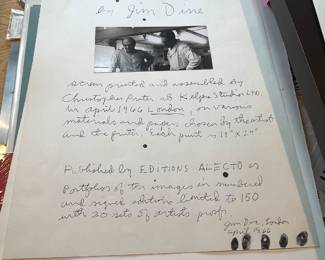 by Jim Dine
screen printed and assembled by
Christopher Prater at Kelpra Studio LTD.
in april 1966 London, on various
materials and paper chosen by the artist
and the printer. Each print is 19" x 24".
Published by EDITIONS ALECTO as
Portfolios of ten images in numbered
and signed editions limited to 150
with 20 sets of artists proofs.
Jim Dine, London
April 1966